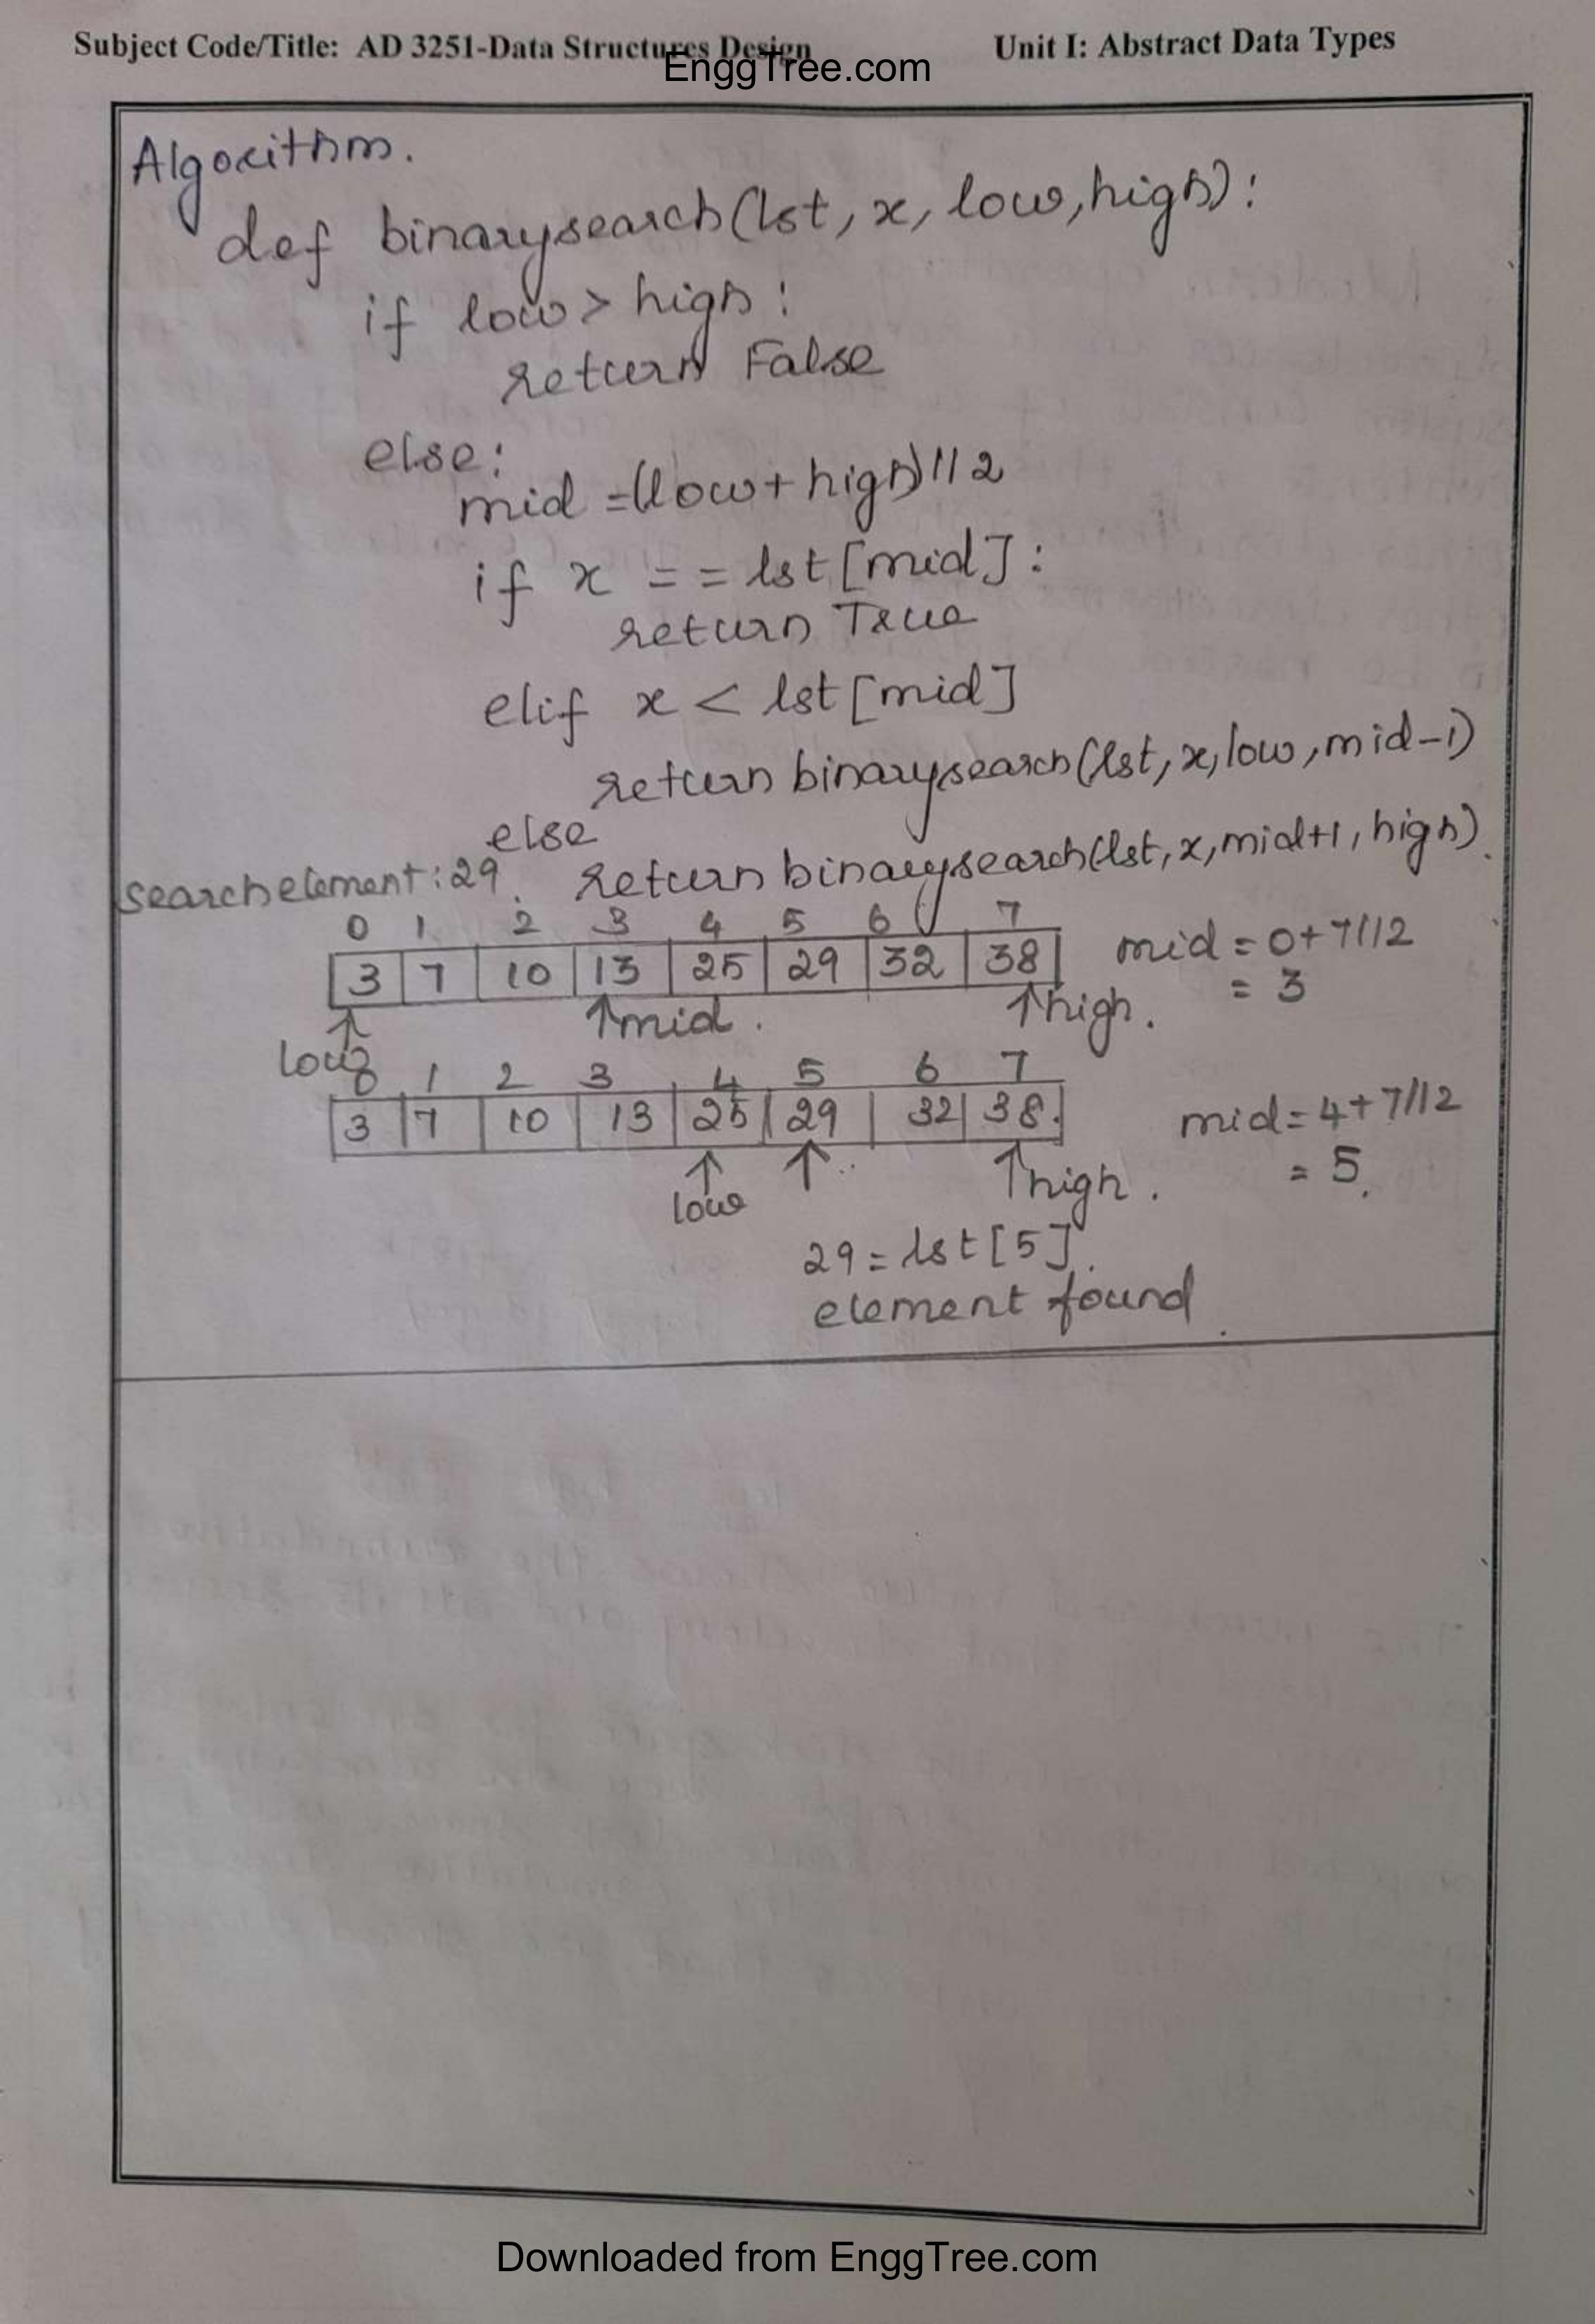 Subject Code/Title: AD 3251-Data Structures Design Unit I: Abstract Data Types
EnggTree.com
Algorithm.
def binarysearch(lst, x, low, high):
if low > high:
return False
else:
mid =(low+high)//2
if x == lst[mid]:
return True
elif x < lst[mid]
return binarysearch(lst, x, low, mid-1)
else
return binarysearch(lst, x, mid+1, high).
search element: 29.
0 1 2 3 4 5 6 7
3 7 10 13 25 29 32 38
mid = 0+7//2
= 3
low
↑mid.
↑high.
0 1 2 3 4 5 6 7
3 7 10 13 25 29 32 38.
mid = 4+7//2
= 5.
low
↑high.
29 = lst[5].
element found.
Downloaded from EnggTree.com